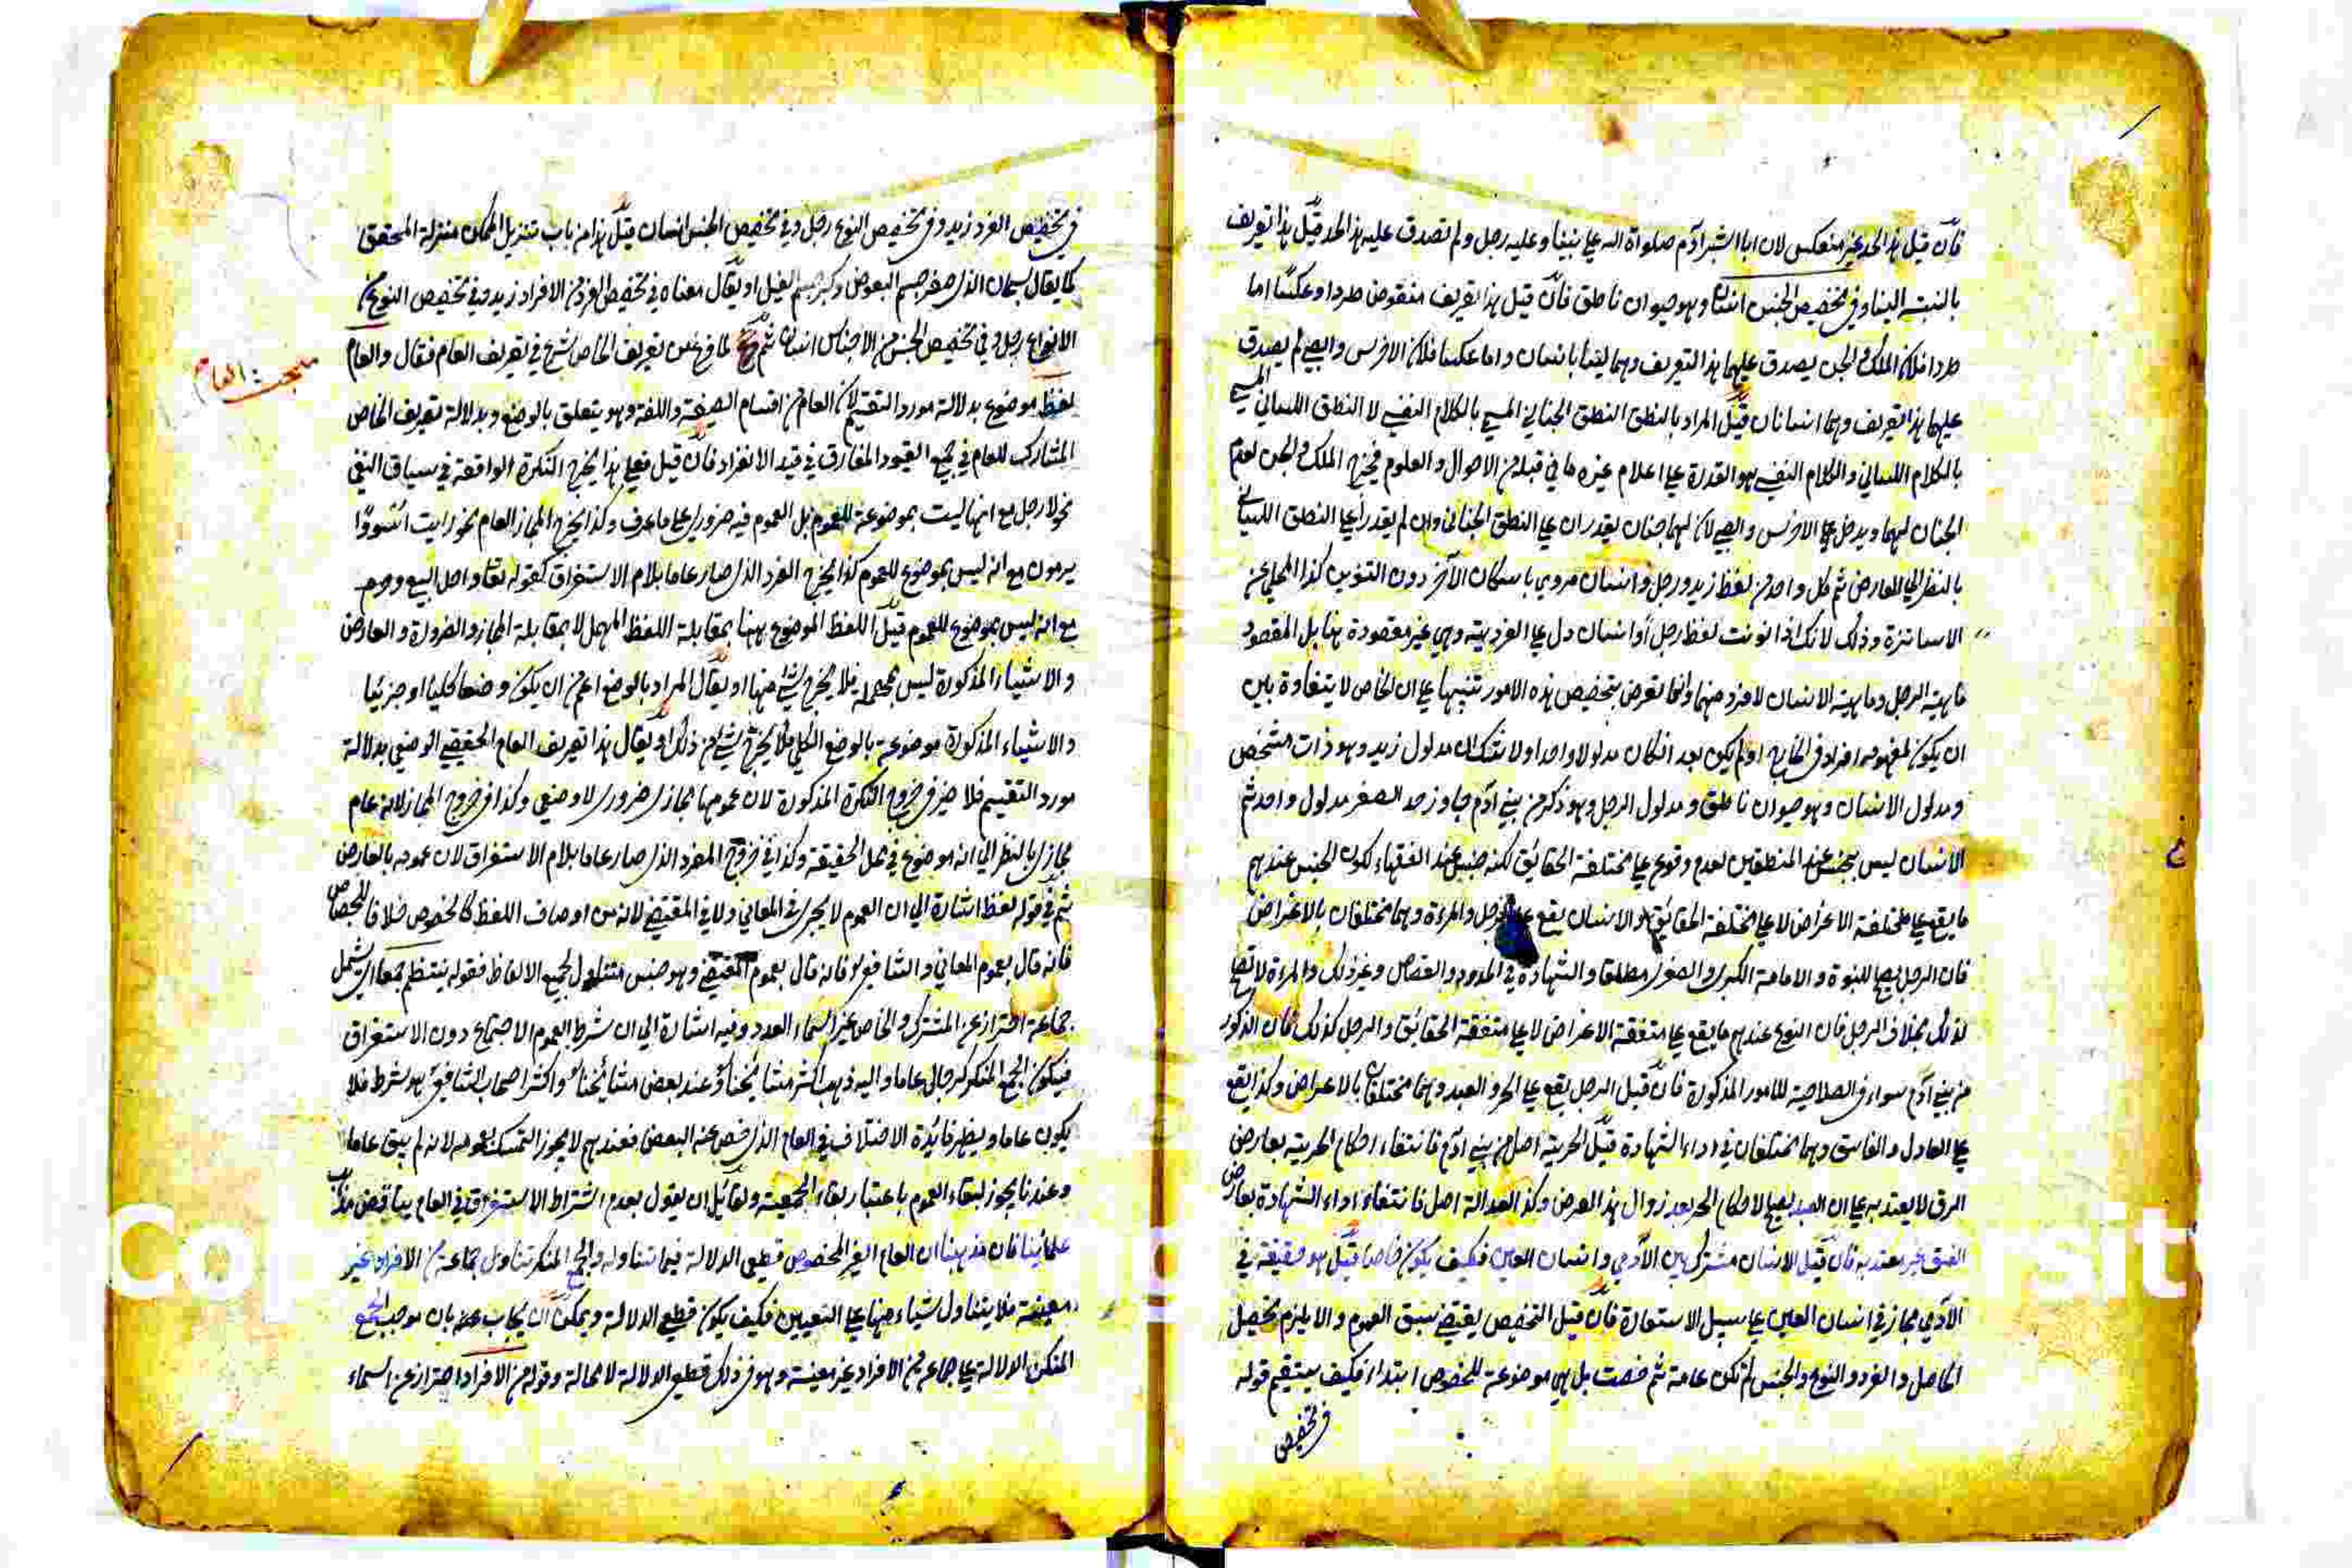 فان قيل هذا الحد غير منعكس لان ابا البشر آدم صلواة الله على نبينا وعليه رجل ولم تصدق عليه هذا الحد قيل هذا تعريف
بالنسبة الينا وفي تخصيص الجنس انسان وهو حيوان ناطق فان قيل هذا تعريف منقوض طردا وعكسا اما
طردا فلان الملك والجن يصدق عليهما هذا التعريف وهما ليسا بانسان واما عكسا فلان الاخرس والصبي لم يصدق
عليهما هذا التعريف وهما انسانان قيل المراد بالنطق النطق الجناني المسمى بالكلام النفسي لا النطق اللساني المسمى
بالكلام اللساني والكلام النفسي هو القدرة على اعلام غيره ما في قبله من الاحوال والعلوم فيخرج الملك والجن لعدم
الجنان لهما ويدخل الاخرس والصبي لان لهما جنان يقدران على النطق الجناني وان لم يقدرا على النطق اللساني
بالنظر الى العارض ثم كل واحد من لفظ زيد ورجل وانسان مروي باسكان الآخر دون التنوين كذا المحلي عن
الاساتذة وذلك لانك اذا نونت لفظ رجل او انسان دل على الفردية وهي غير مقصودة هنا بل المقصود
ماهية الرجل وماهية الانسان لا فرد منهما وانما تعرض بتخصيص هذه الامور تنبيها على ان الخاص لا يتفاوة بين
ان يكون لمفهومه افراد في الخارج او لم يكن بعد ان كان مدلولا واحدا ولا شك ان مدلول زيد وهو ذات مشخص
ومدلول الانسان وهو حيوان ناطق ومدلول الرجل وهو ذكر من بني آدم جاوز حد الصغر مدلول واحد ثم
الانسان ليس بجنس عند المنطقين لعدم وقوعه على مختلفة الحقائق لكنه جنس عند الفقهاء لكون الجنس عندهم
ما يقع على مختلفة الاغراض لا على مختلفة الحقائق والانسان يقع على الرجل والمرءة وهما مختلفان بالاغراض
فان الرجل يصلح للنبوة والامامة الكبرى والصغرى مطلقا والشهادة في الحدود والقصاص وغير ذلك والمرءة لا تصلح
لذلك بخلاف الرجل فان النوع عندهم ما يقع على متفقة الاغراض لا على متفقة الحقائق والرجل كذلك فان الذكور
من بني آدم سواء في الصلاحية للامور المذكورة فان قيل الرجل يقع على الحر والعبد وهما مختلفان بالاغراض وكذا يقع
على العادل والفاسق وهما مختلفان في اداء الشهادة قيل الحرية اصل من بني آدم فانتفاء احكام الحرية بعارض
الرق لا يعتد به على ان العبد يصلح لاحكام الحر بعد زوال هذا العرض وكذا العدالة اصل فانتفاء اداء الشهادة بعارض
الفسق غير معتد به فان قيل الانسان مشترك بين الآدمي وانسان العين فكيف يكون خاصا قيل هو حقيقة في
الآدمي مجاز في انسان العين على سبيل الاستعارة فان قيل التخصيص يقتضي سبق العموم والا يلزم تحصيل
الحاصل والفرد والنوع والجنس لم تكن عامة ثم خصت بل هي موضوعة للخصوص ابتداء فكيف يستقيم قوله
في تخصيص
في تخصيص الفرد زيد وفي تخصيص النوع رجل وفي تخصيص الجنس انسان قيل هذا من باب تنزيل الممكن منزلة المحقق
كما يقال سبحان الذي صغر جسم البعوض وكبر جسم الفيل او يقال معناه في تخصيص الفرد من الافراد زيد وفي تخصيص النوع من
الانواع رجل وفي تخصيص الجنس من الاجناس انسان ثم لما فرغ عن تعريف الخاص شرع في تعريف العام فقال والعام
مبحث العام
لفظ موضوع بدلالة مورد التقسيم لان العام من اقسام الصيغة واللغة وهو يتعلق بالوضع وبدلالة تعريف الخاص
المشارك للعام في جميع القيود المفارق في قيد الانفراد فان قيل فعلى هذا يخرج النكرة الواقعة في سياق النفي
نحو لا رجل مع انها ليست بموضوعة للعموم بل العموم فيه ضروري على ما عرف وكذا يخرج المجاز العام نحو رايت اسودا
يرمون مع انه ليس بموضوع للعموم كذا يخرج الفرد الذي صار عاما بلام الاستغراق كقوله تعالى واحل البيع وحرم
مع انه ليس بموضوع للعموم قيل اللفظ الموضوع ههنا بمقابلة اللفظ المهمل لا بمقابلة المجاز والضرورة والعارض
والاشياء المذكورة ليس بمهملة فلا يخرج شئ منها او يقال المراد بالوضع اعم من ان يكون وضعا كليا او جزئيا
والاشياء المذكورة موضوعة بالوضع الكلي فلا يخرج شئ من ذلك او يقال هذا تعريف العام الحقيقي الوضعي بدلالة
مورد التقسيم فلا ضير في خروج النكرة المذكورة لان عمومها مجازي ضروري لا وضعي وكذا في خروج المجاز لانه عام
مجازي بالنظر الى انه موضوع في محل الحقيقة وكذا في خروج المفرد الذي صار عاما بلام الاستغراق لان عمومه بالعارض
ثم في قوله لفظ اشارة الى ان العموم لا يجري في المعاني ولا في المقتضي لانه من اوصاف اللفظ كالخصوص خلافا للجصاص
فانه قال بعموم المعاني والشافعي فانه قال بعموم المقتضي وهو جنس متناول لجميع الالفاظ فقوله ينتظم جمعا اي يشمل
جماعة احتراز عن المشترك والخاص غير اسماء العدد وفيه اشارة الى ان شرط العموم الاجتماع دون الاستغراق
فيكون الجمع المنكر كرجال عاما واليه ذهب اكثر مشايخنا وعند بعض مشايخنا واكثر اصحاب الشافعي هو شرط فلا
يكون عاما ويظهر فائدة الاختلاف في العام الذي خص عنه البعض فعندهم لا يجوز التمسك بعمومه لانه لم يبق عاما
وعندنا يجوز لبقاء العموم باعتبار بقاء الجمعية ولقائل ان يقول بعدم اشتراط الاستغراق في العام يناقض مذهب
علمائنا فان مذهبنا ان العام الغير المخصوص قطعي الدلالة فيما تناوله والجمع المنكر تناول جماعة من الافراد غير
معينة فلا يتناول شياء منها على التعيين فكيف يكون قطعي الدلالة ويمكن ان يجاب عنه بان موجب الجمع
المنكر الدلالة على جماعة من الافراد غير معينة وهو في ذلك قطعي الدلالة لا محالة وقوله من الافراد احتراز عن اسماء